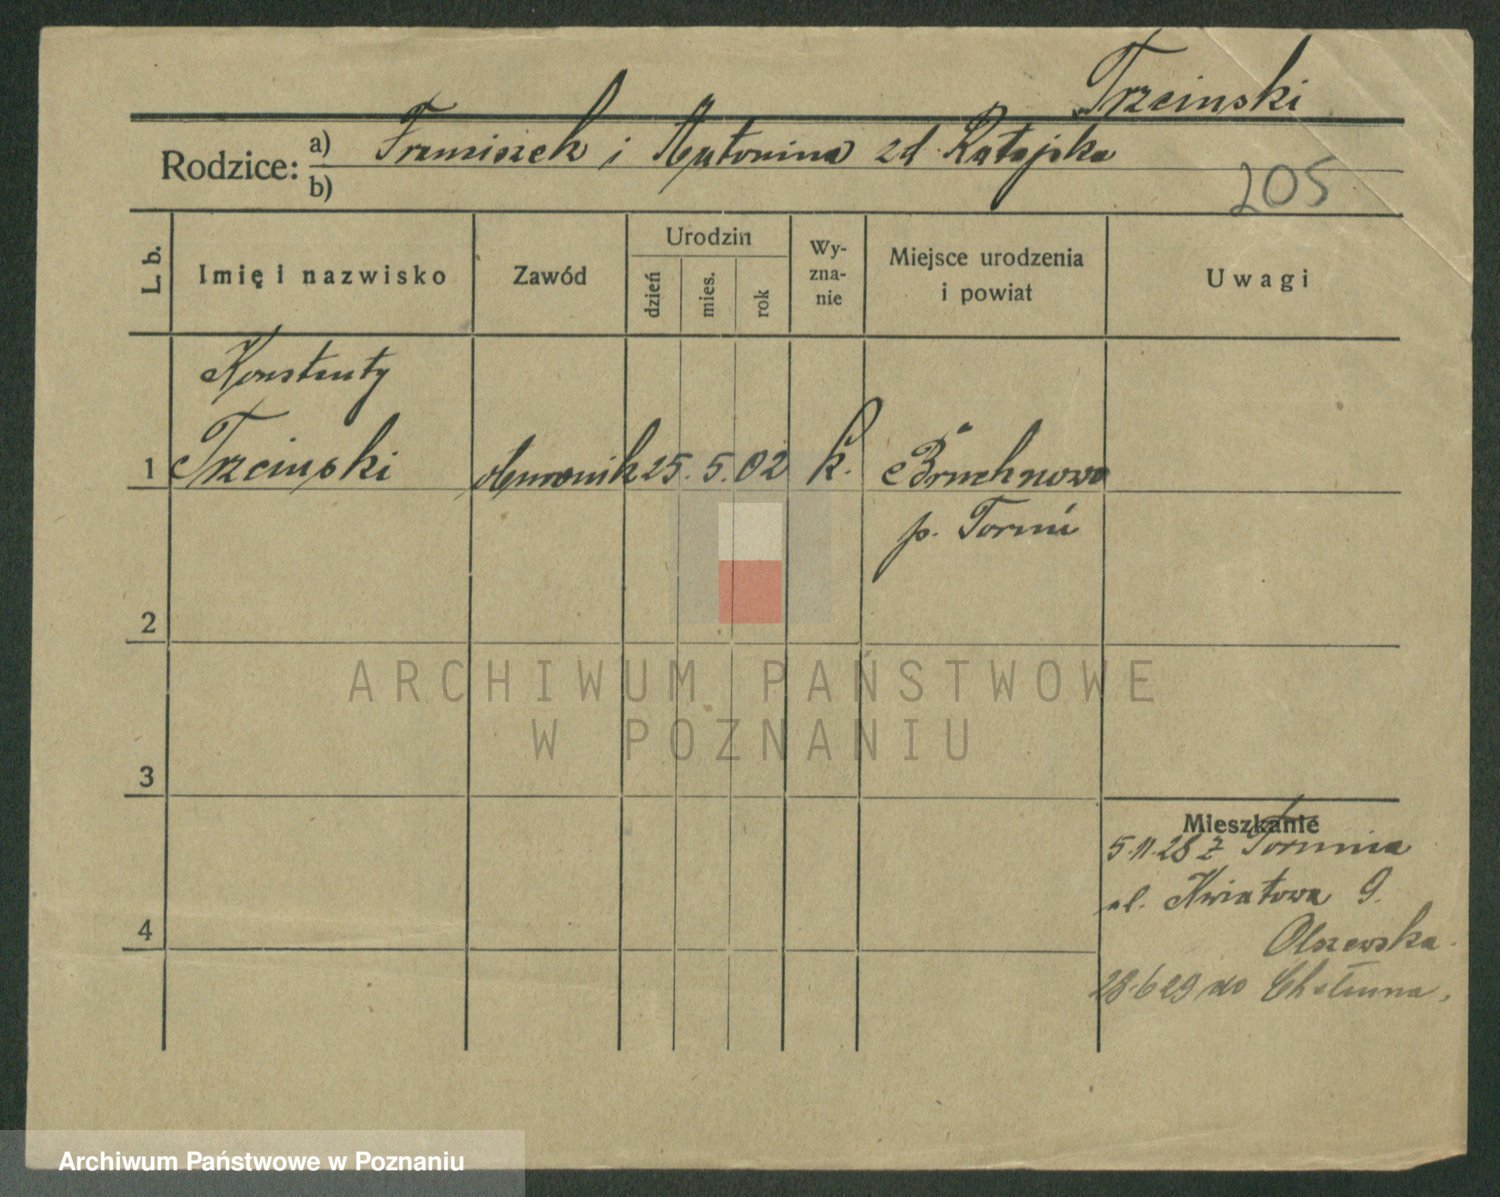 Trzcinski
Rodzice: a) Franciszek i Antonina zd. Ratajska
b)
205
L. b.
Imię i nazwisko
Zawód
Urodzin
dzień
mies.
rok
Wy-
zna-
nie
Miejsce urodzenia
i powiat
Uwagi
Konstanty
1 Trzcinski 25. 5. 02 k. Bruchnowo
p. Toruń
2
3
4
Mieszkanie
5.11.28 z Torunia
ul. Kwiatowa 9.
Olszewska.
28.6 29 do Chełmna.
ARCHIWUM PAŃSTWOWE
W POZNANIU
Archiwum Państwowe w Poznaniu